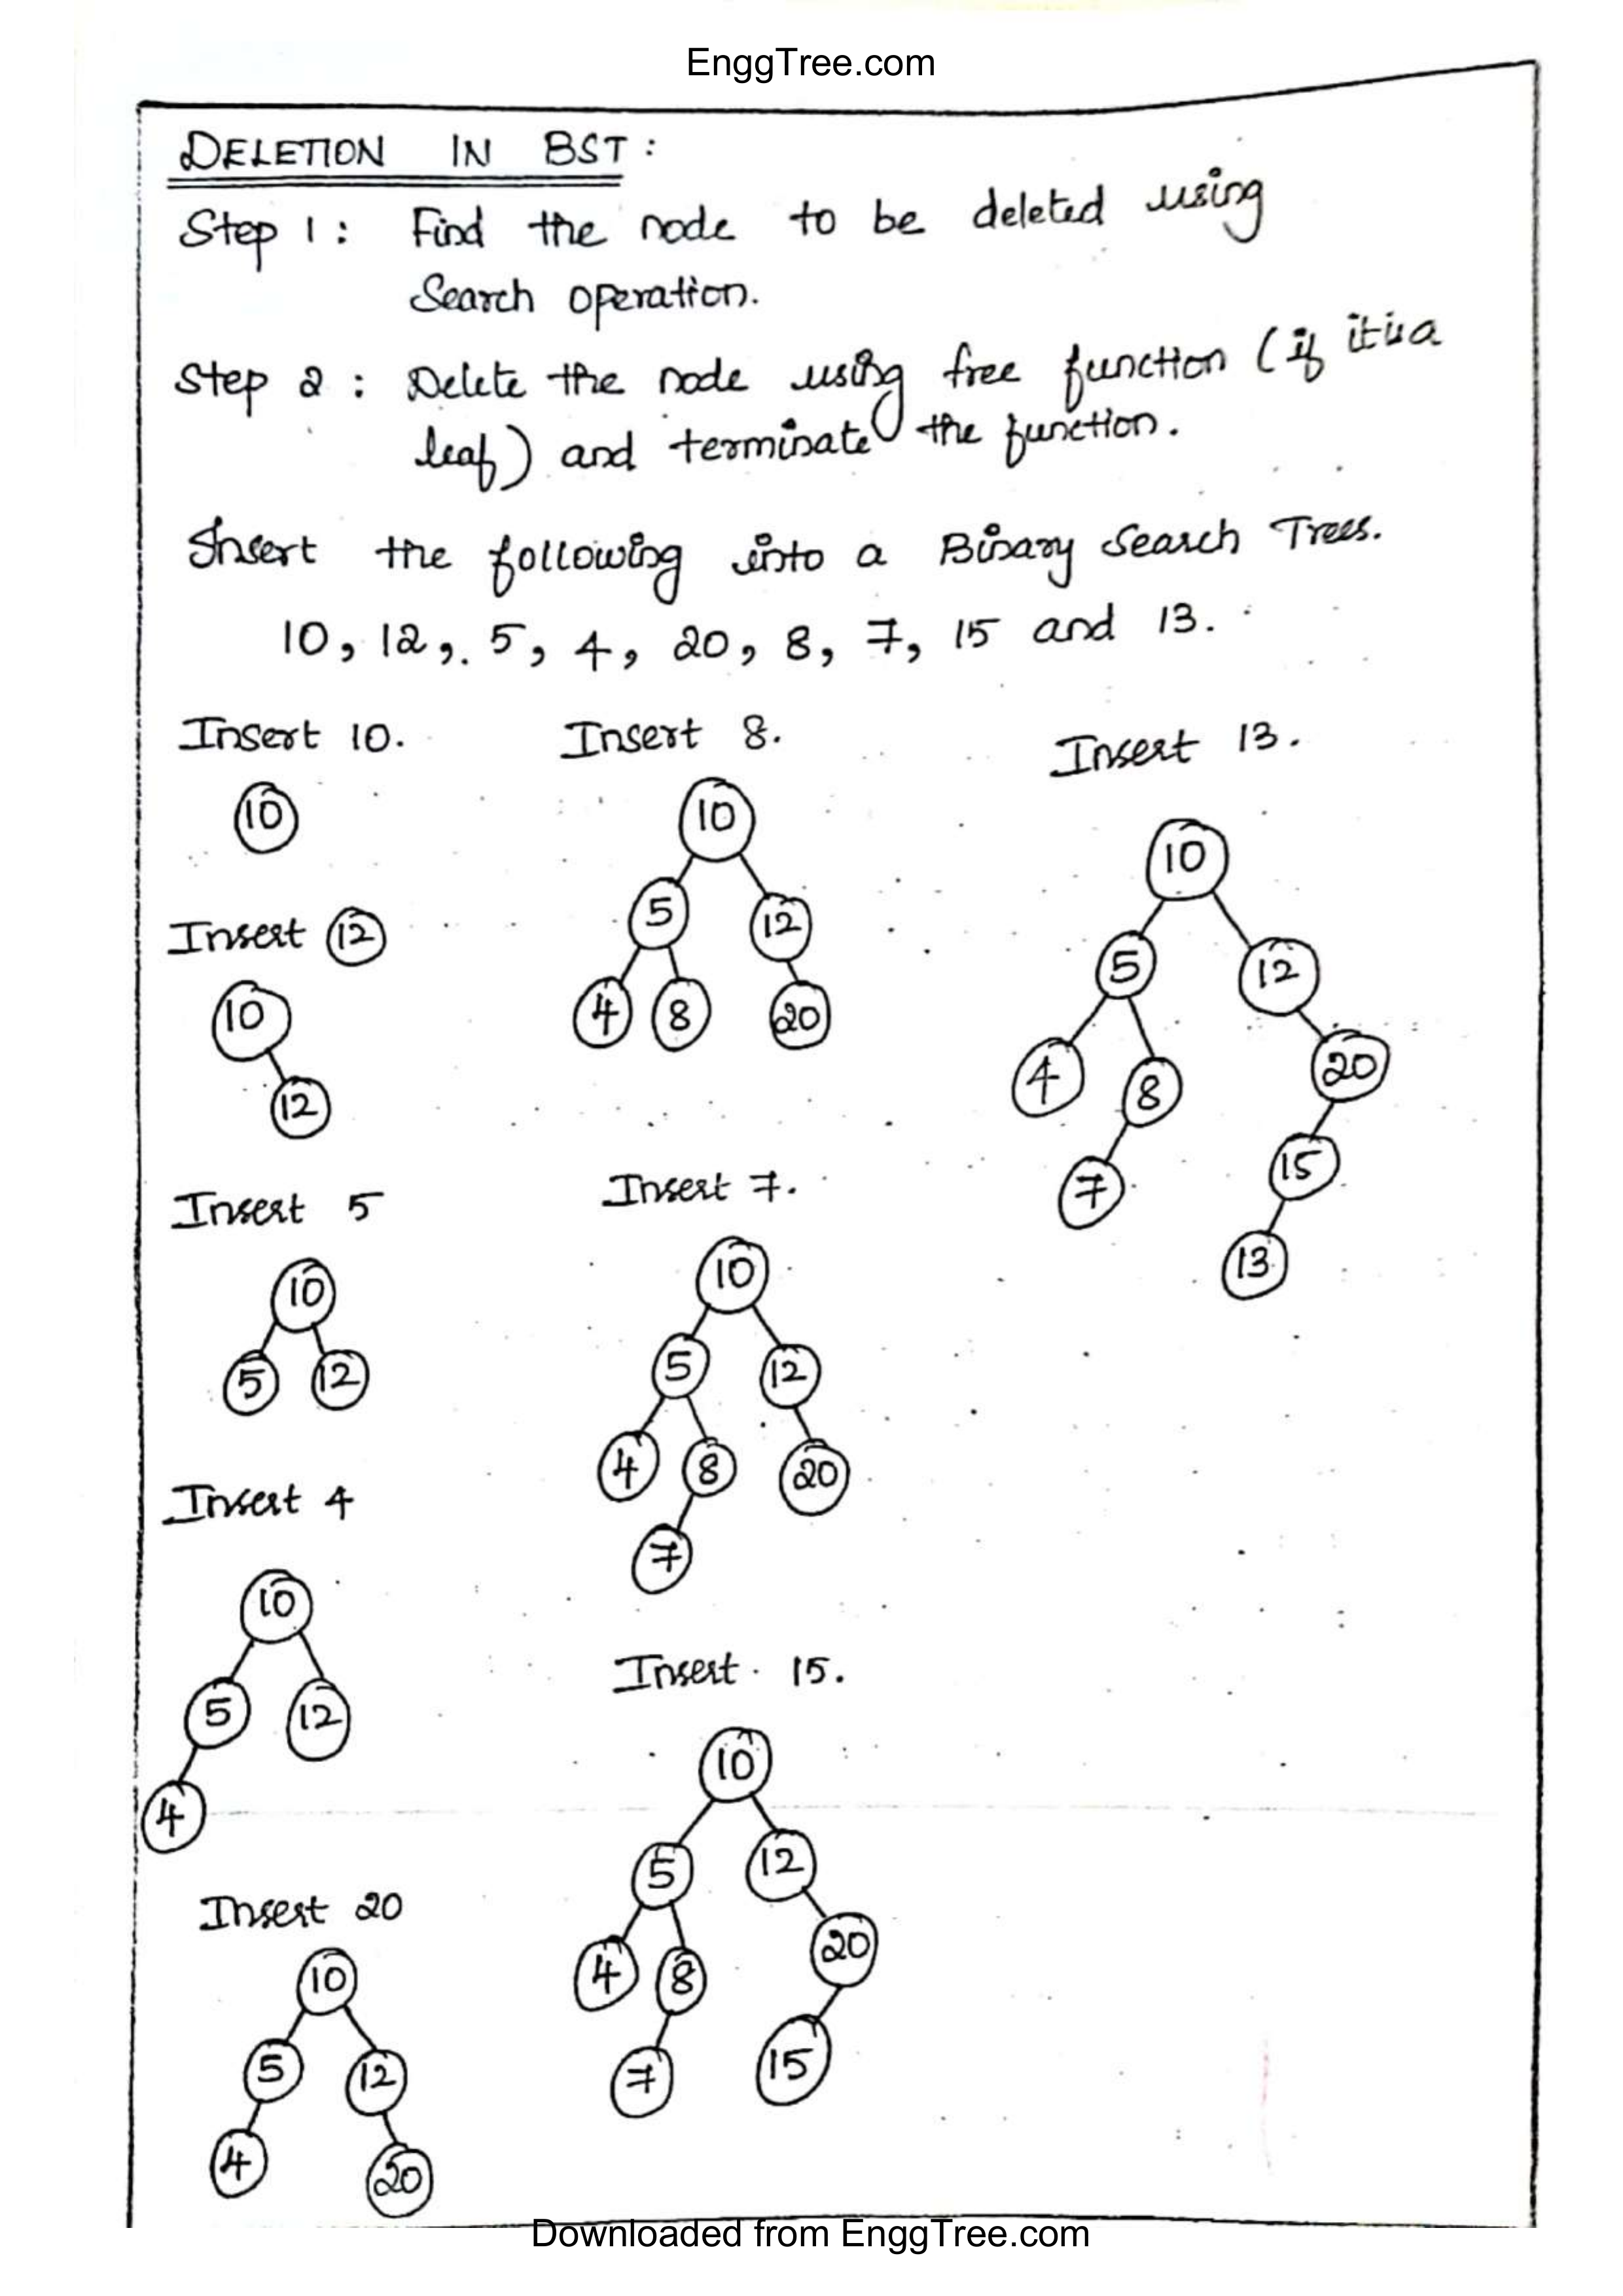 EnggTree.com
DELETION IN BST :
Step 1 : Find the node to be deleted using
Search operation.
Step 2 : Delete the node using free function (if it is a
leaf) and terminate the function.
Insert the following into a Binary Search Trees.
10, 12, 5, 4, 20, 8, 7, 15 and 13.
Insert 10.
10
Insert 12
10
12
Insert 5
10
5 12
Insert 4
10
5 12
4
Insert 20
10
5 12
4 20
Insert 8.
10
5 12
4 8 20
Insert 7.
10
5 12
4 8 20
7
Insert 15.
10
5 12
4 8 20
7 15
Insert 13.
10
5 12
4 8 20
7 15
13
Downloaded from EnggTree.com